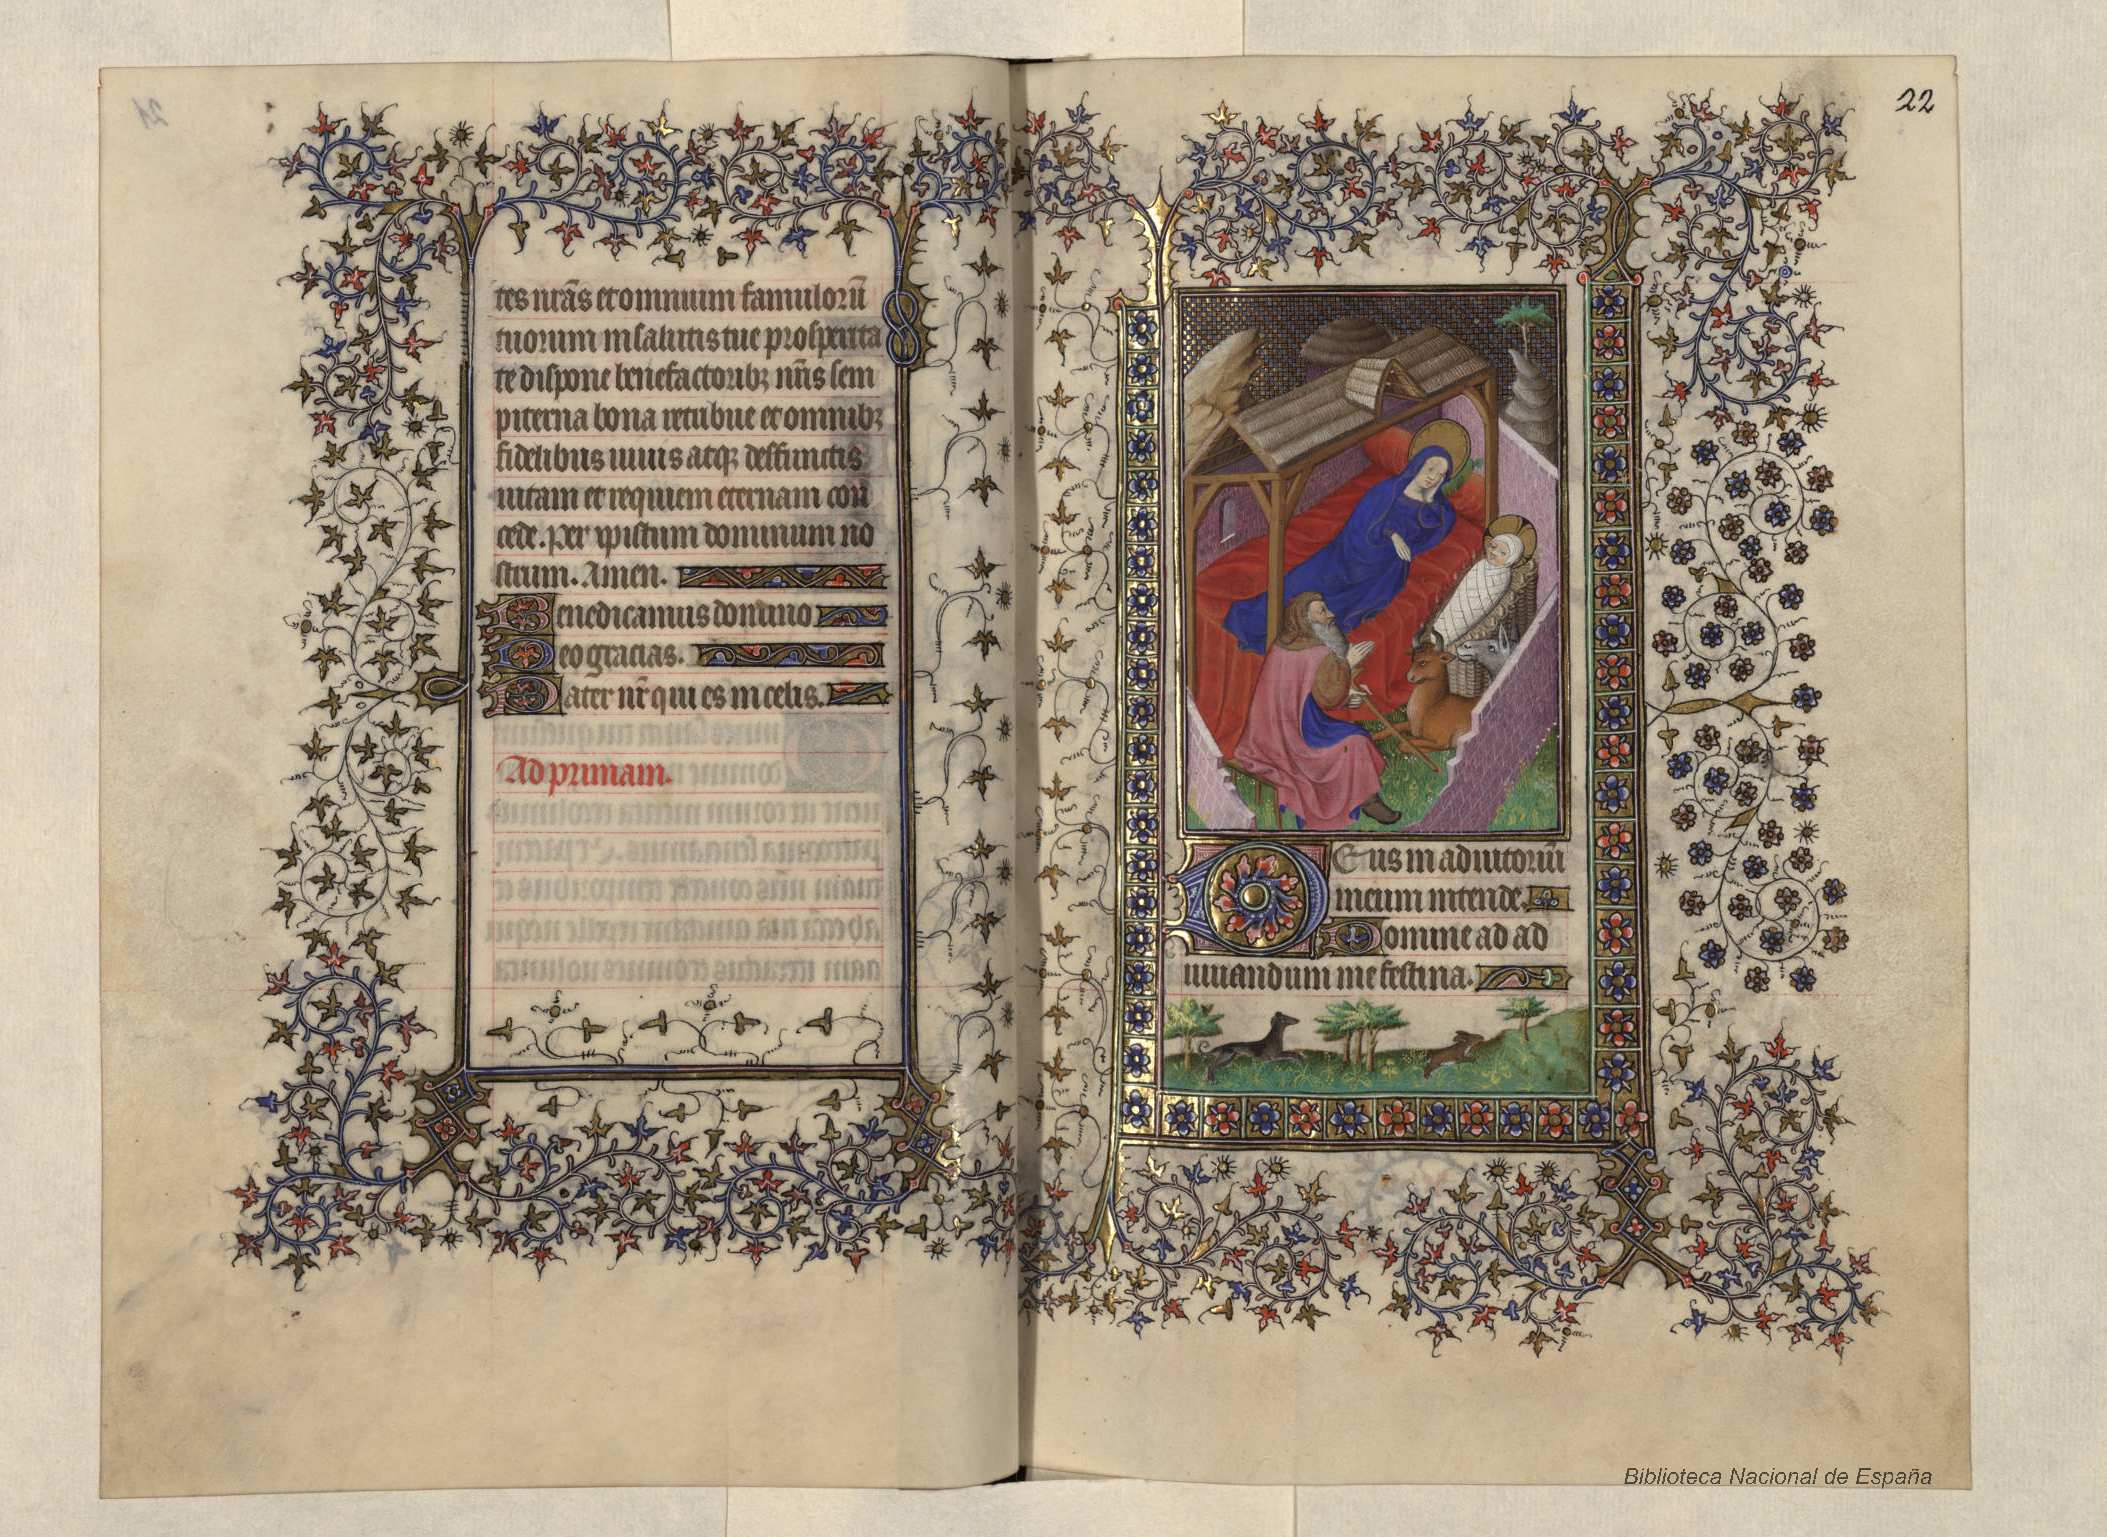 tes nr̄as et omnium famulorū
tuorum in salutis tue prosperita
te dispone benefactoribꝫ nr̄is sem
piterna bona retribue et omnibꝫ
fidelibus uiuis atqꝫ deffunctis
uitam et requiem eternam con
cede. per xp̄istum dominum no
strum. Amen.
Benedicamus domino
Deo gracias.
Pater nr̄ qui es in celis.
Ad primam.
22
Deus in adiutoriū
meum intende.
Domine ad ad
iuuandum me festina.
Biblioteca Nacional de España